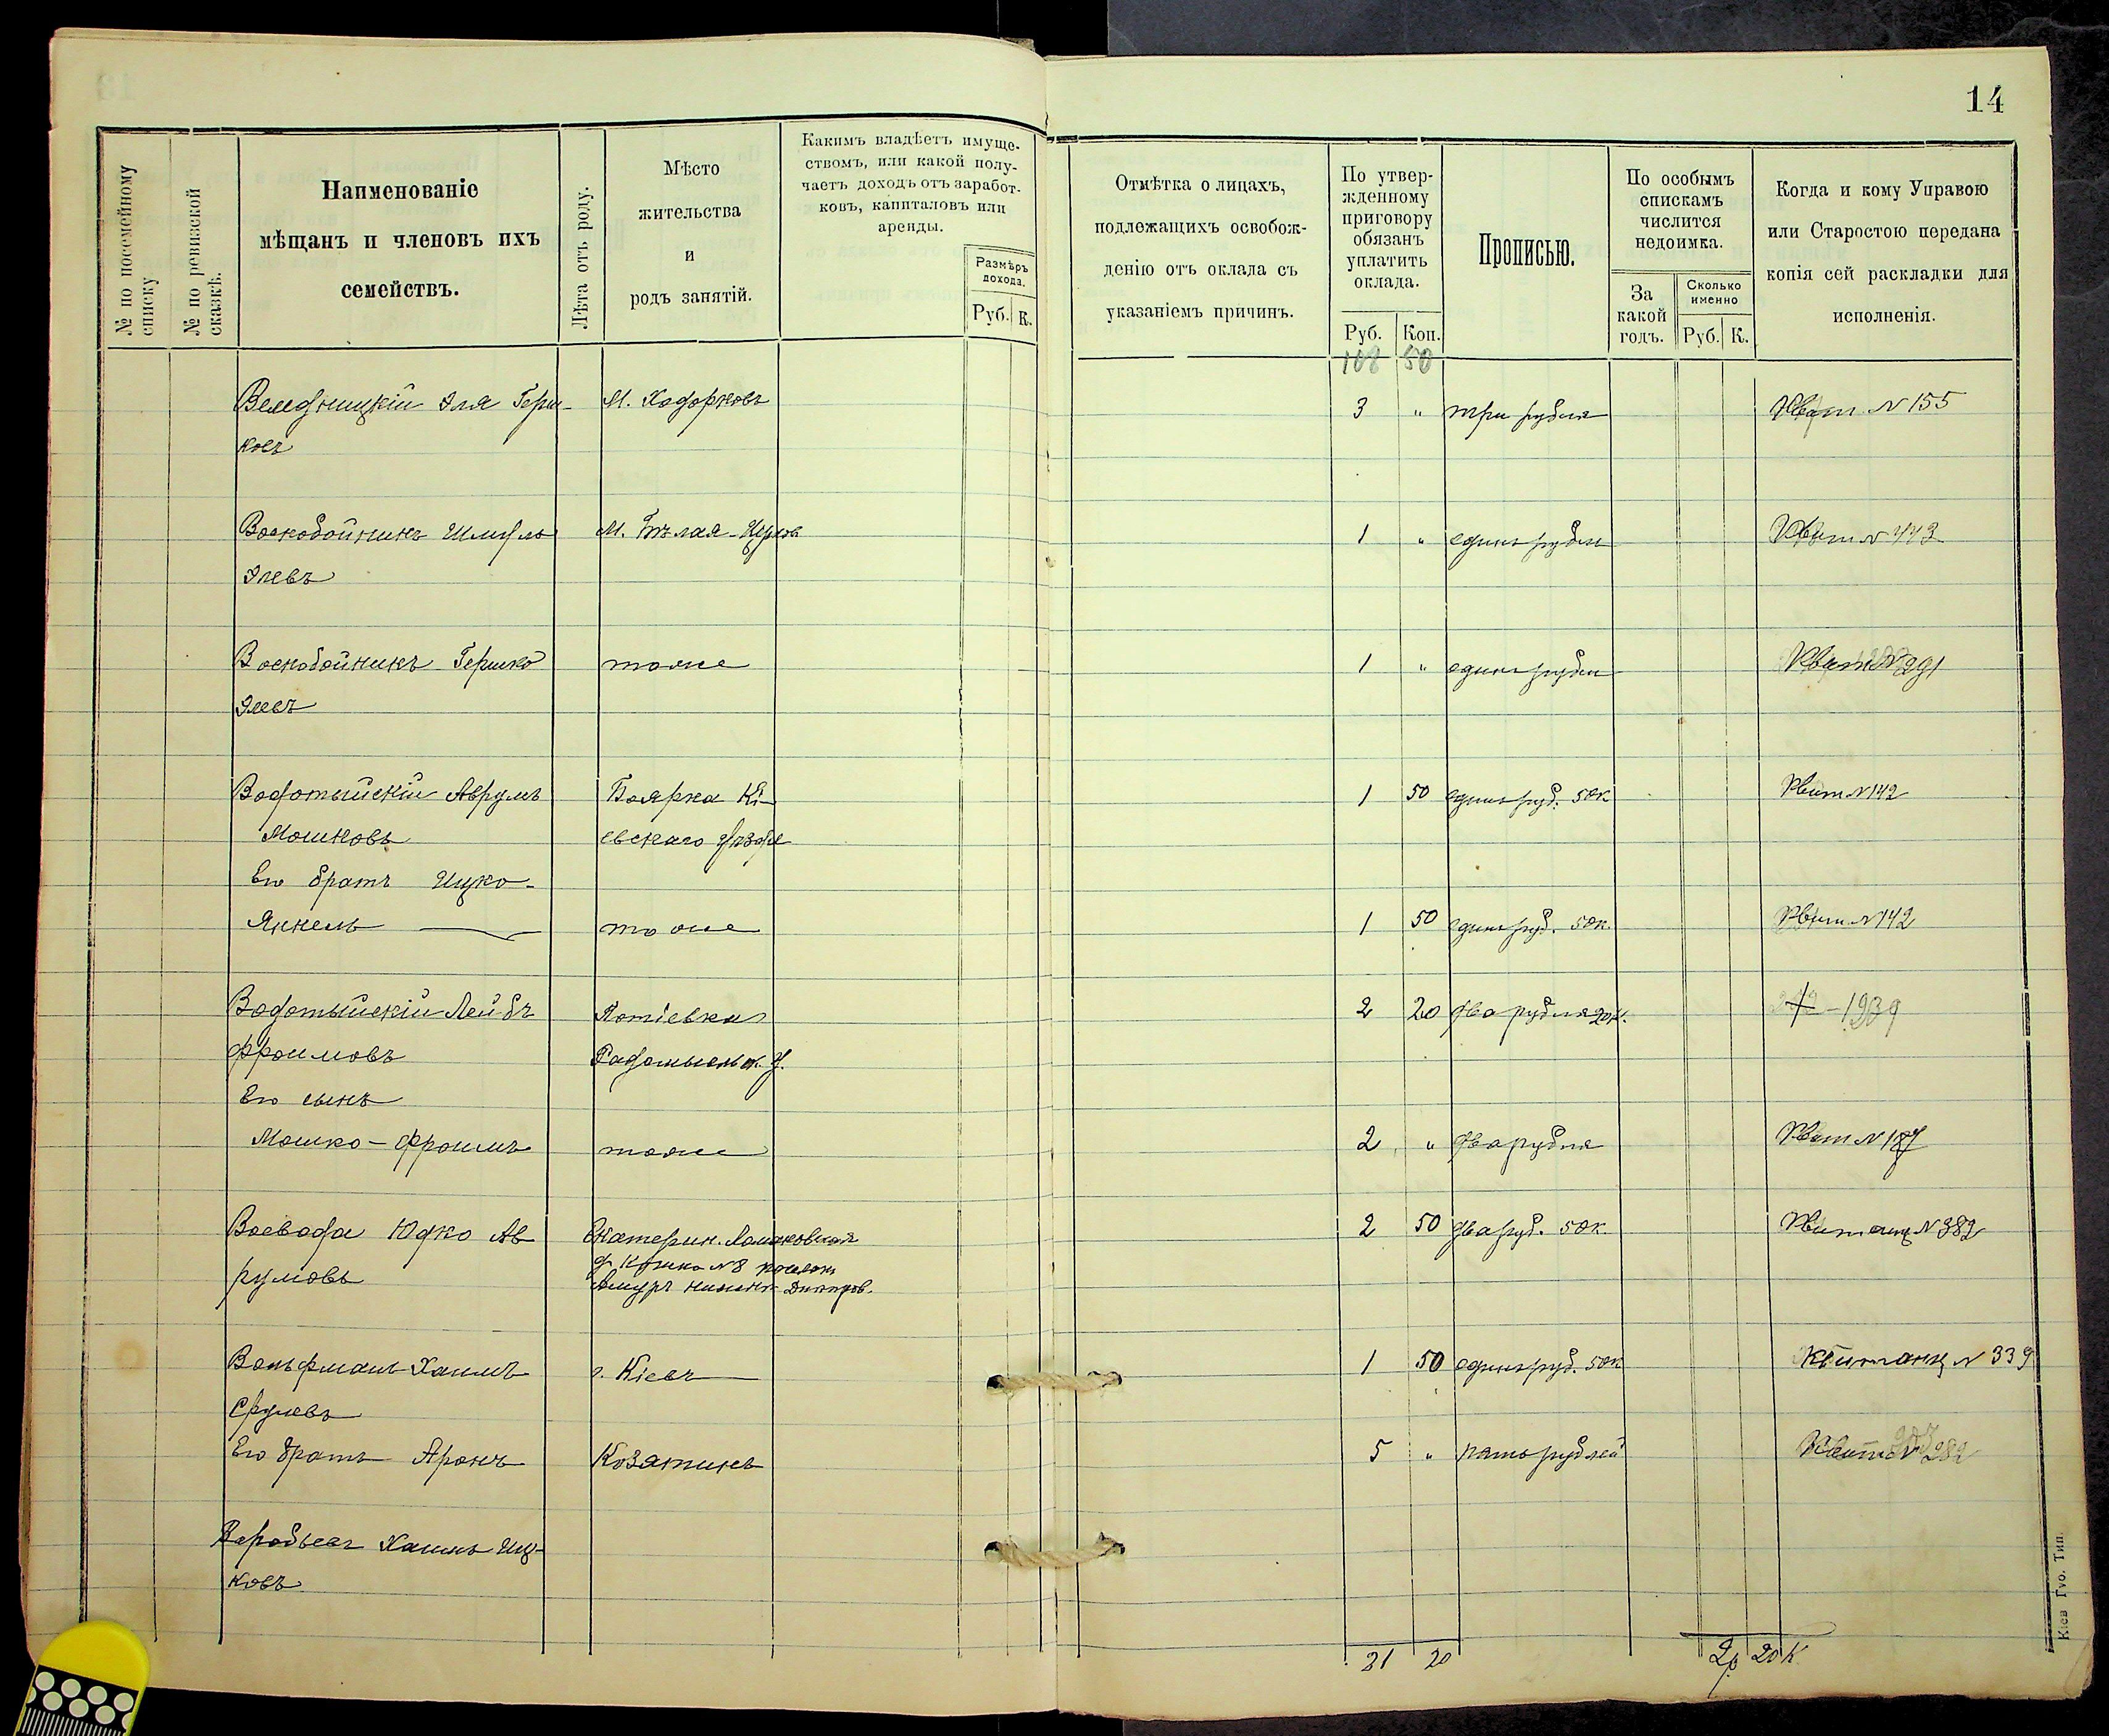 14
№ по посемейному списку
№ по ревизской сказкѣ.
Наименованіе
мѣщанъ и членовъ ихъ
семействъ.
Лѣта отъ роду.
Мѣсто
жительства
и
родъ занятій.
Какимъ владѣетъ имуще-
ствомъ, или какой полу-
чаетъ доходъ отъ заработ-
ковъ, капиталовъ или
аренды.
Размѣръ
дохода.
Руб. К.
Отмѣтка о лицахъ,
подлежащихъ освобож-
денію отъ оклада съ
указаніемъ причинъ.
По утвер-
жденному
приговору
обязанъ
уплатить
оклада.
Руб. Коп.
Прописью.
По особымъ
спискамъ
числится
недоимка.
За
какой
годъ.
Сколько
именно
Руб. К.
Когда и кому Управою
или Старостою передана
копія сей раскладки для
исполненія.
108 50
Веледницкій Эля Герш- М. Ходорковъ 3 " три рубля Квит N 155
ковъ
Воскобойникъ Шмуль М. Бѣлая-Церков 1 " одинъ рубль Квит N 443
Элевъ
Воскобойникъ Гершко тоже 1 " одинъ рубль Квит N 291
Элевъ
Водотыйскій Аврумъ Боярка Кі- 1 50 одинъ руб. 50к Квит N 142
Мошковъ евскаго уѣзда
Его братъ Ицко-
Янкель тоже 1 50 одинъ руб. 50к. Квит N 142
Водотыйскій Лейбъ Потіевка 2 20 два рубля 20к. 1939
Фроимовъ Радомысльск. у.
Его сынъ
Мошко-Фроимъ тоже 2 " два рубля Квит N 187
Воевода Юдко Ав Екатерин. 2 50 два руб. 50к. Квитанц N 382
румовъ N 8
Амуръ Нижне Днѣпров.
Вольфманъ Хаимъ г. Кіевъ 1 50 одинъ руб. 50к Квитанц N 339
Срулевъ
Его братъ Аронъ Козятинъ 5 " пять рублей Квит N 282
Воробьевъ Хаимъ Иц-
ковъ
21 20
2р 20к
Кіев Гуо. Тип.